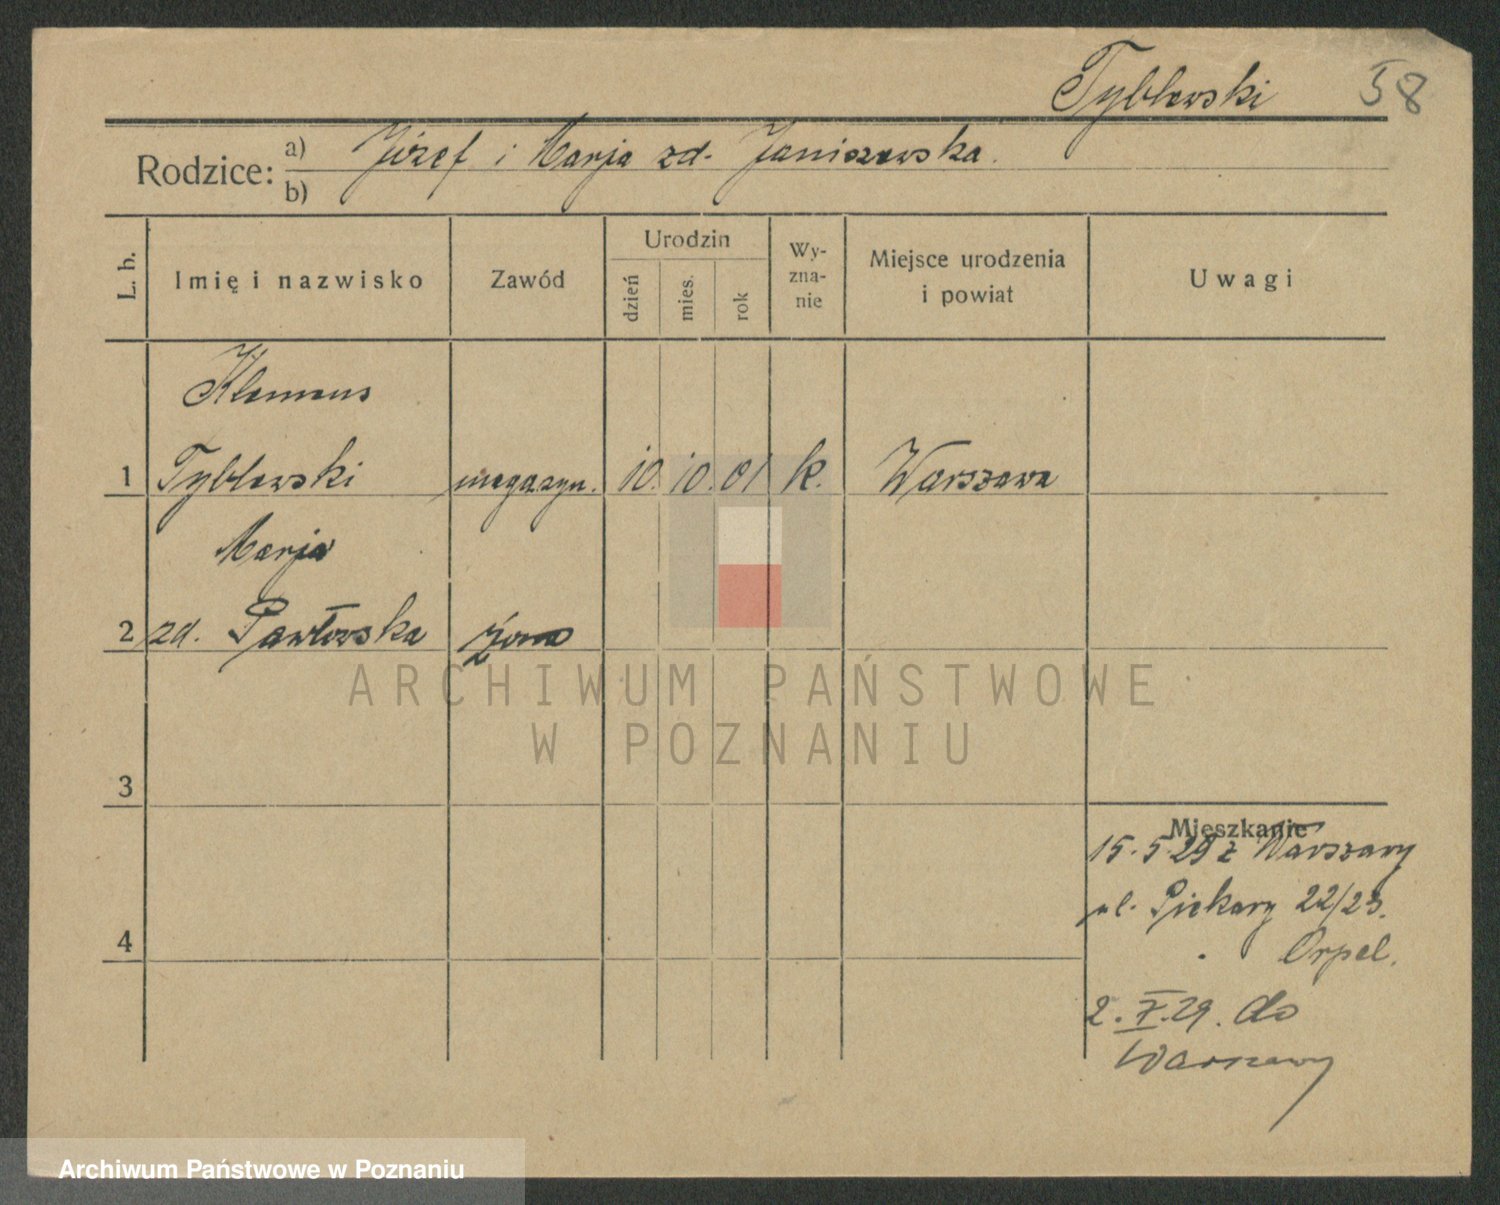 Tyblewski 58
Rodzice: a) Józef i Marja zd. Janiszewska.
b)
L. b. Imię i nazwisko Zawód Urodzin dzień mies. rok Wy-zna-nie Miejsce urodzenia i powiat Uwagi
Klemens
1 Tyblewski magazyn. 10. 10. 01 k. Warszawa
Marja
2 zd. Pawłowska żona
ARCHIWUM PAŃSTWOWE
W POZNANIU
3
Mieszkanie
15.5.29 z Warszawy
ul. Piekary 22/23.
4
Orpel.
2.X.29. do
Warszawy
Archiwum Państwowe w Poznaniu